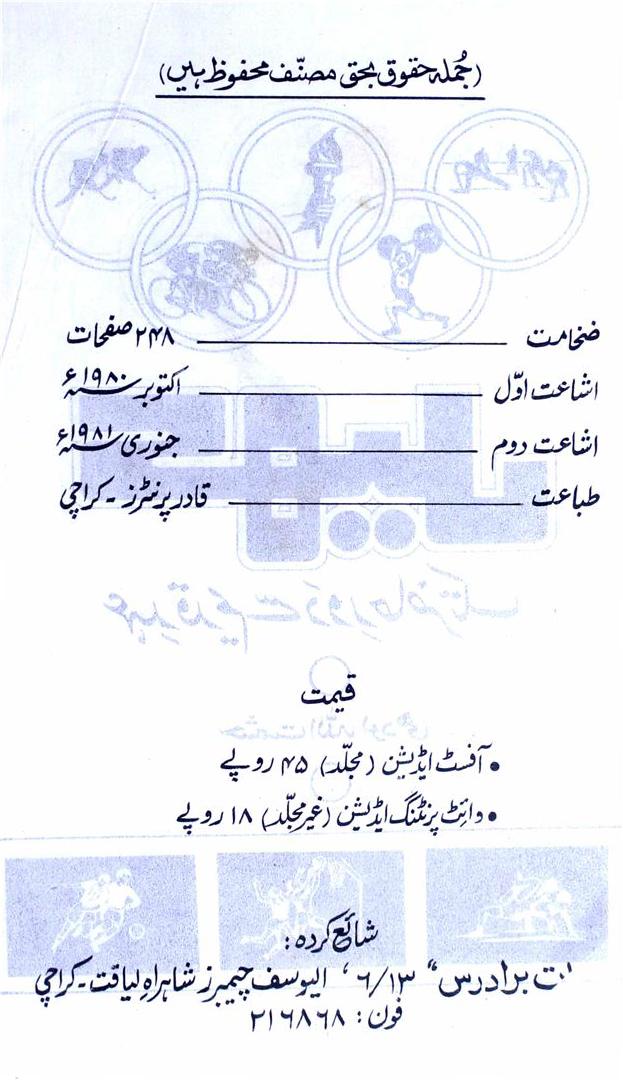 (جُملہ حقوق بحق مصنّف محفوظ ہیں)
ضخامت ۲۴۸ صفحات
اشاعت اوّل اکتوبر ۱۹۸۰ء
اشاعت دوم جنوری ۱۹۸۱ء
طباعت قادر پرنٹرز ۔ کراچی
قیمت
• آفسٹ ایڈیشن (مجلّد) ۴۵ روپے
• وائٹ پرنٹنگ ایڈیشن (غیر مجلّد) ۱۸ روپے
شائع کردہ:
برادرس“ ۶/۱۳ ، الیوسف چیمبرز شاہراہِ لیاقت ۔ کراچی
فون: ۲۱۶۸۶۸